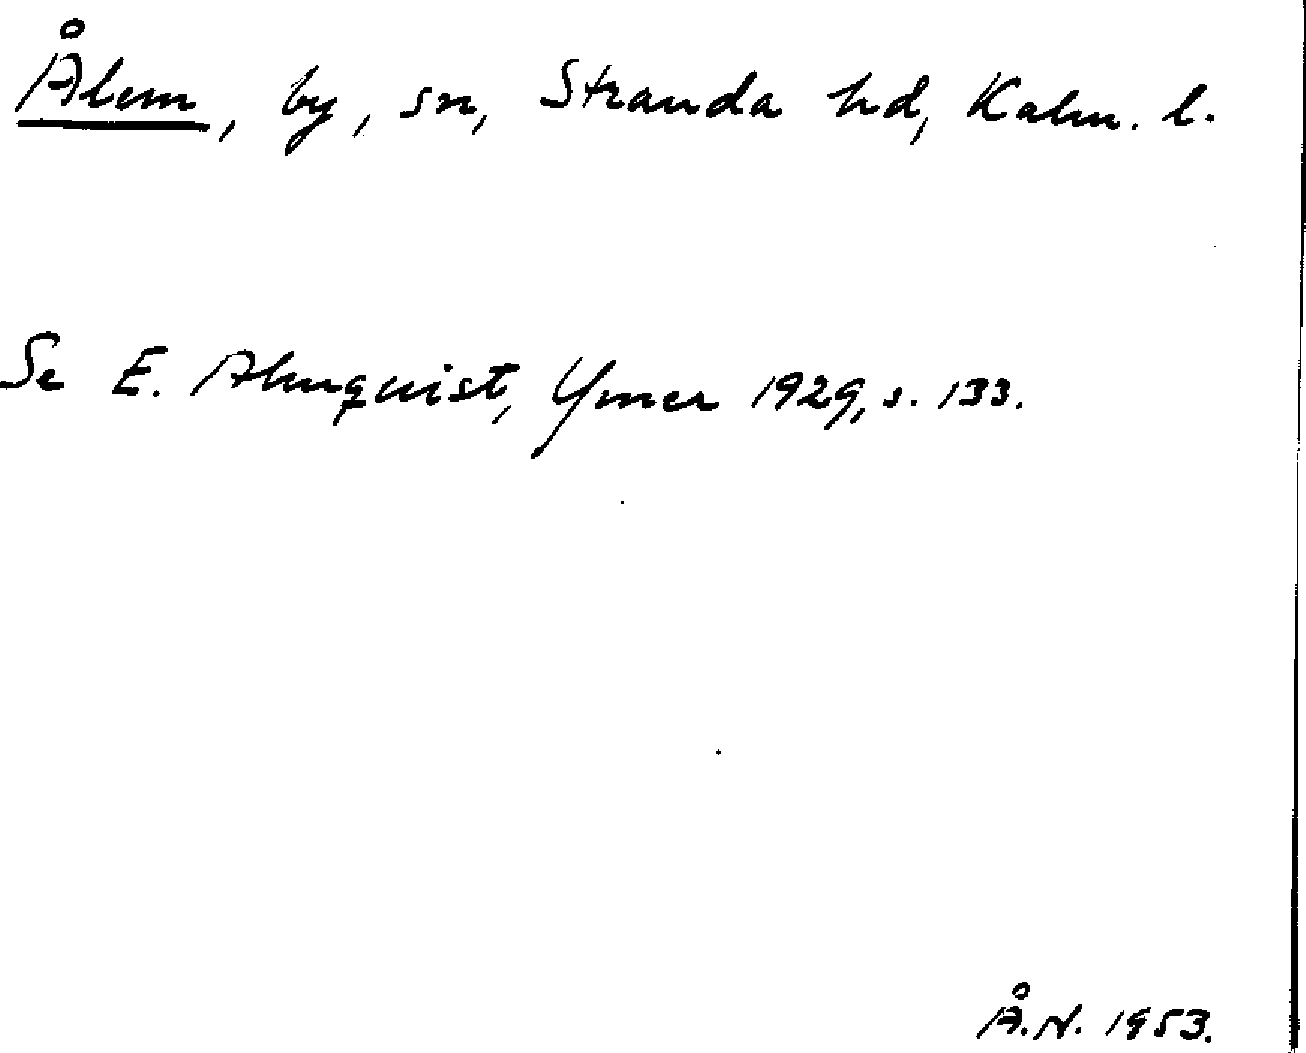 Ålem, by, sn, Stranda hd, Kalm. l.
Se E. Almquist, Ymer 1929, s. 133.
Å.N. 1953.